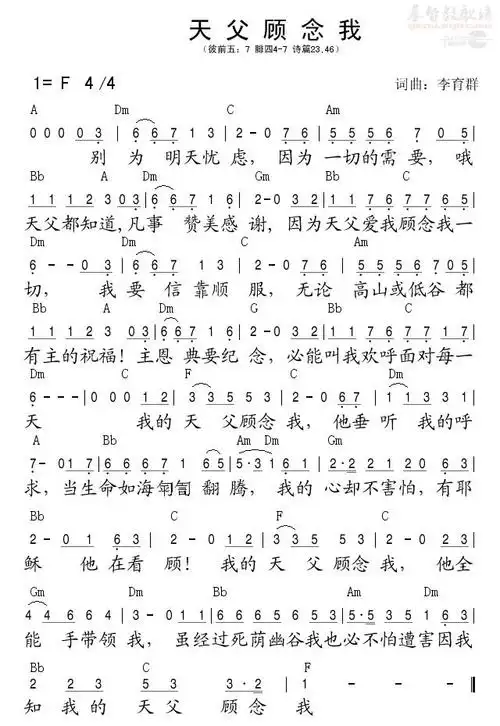 天父顾念我
(彼前五:7 腓四4-7 诗篇23.46)
1= F 4/4
词曲:李育群
A Dm C Am
000 0 3 | 6 6 7 1 3 | 2 - 0 7 6 | 5 5 5 6 7 0 5 |
别为 明天忧虑, 因为 一切的需要, 哦
Bb Am Dm Gm Bb C
1 1 1 2 3 0 3 | 6 6 7 1 6 | 2 - 0 1 7 6 | 1 7 6 7 7 6 5 |
天父都知道,凡事 赞美感谢,因为天父爱我顾念我一
Dm Dm C Am
6 - - 0 3 | 6 6 7 1 3 | 2 - 0 7 6 | 5 5 5 6 7 0 5 |
切, 我要 信靠顺服, 无论 高山或低谷都
Bb A Dm G Bb C
有主的祝福! 主恩 典要纪念,必能叫我欢呼面对每一
Dm C F C Dm
6 - - - | 0 0 0 1 | 3 3 5 5 3 | 2 - 0 6 7 | 1 1 3 3 1 |
天 我的 天父顾念我, 他垂听 我的呼
A Bb Am Dm Gm
求,当生命如海 翻腾, 我的 心却不害怕,有耶
Bb C F C
2 - 0 1 6 3 | 2 - 0 1 | 3 3 5 5 3 | 2 - 0 6 3 |
稣 他在看顾! 我的 天父顾念我, 他全
Gm Dm Bb C
能 手带领我, 虽经过死荫幽谷我也必不怕遭害因我
Bb C F
2 2 3 5 3 3 2 0 2 1 | 1 - - - ‖
知我的天父 顾念我